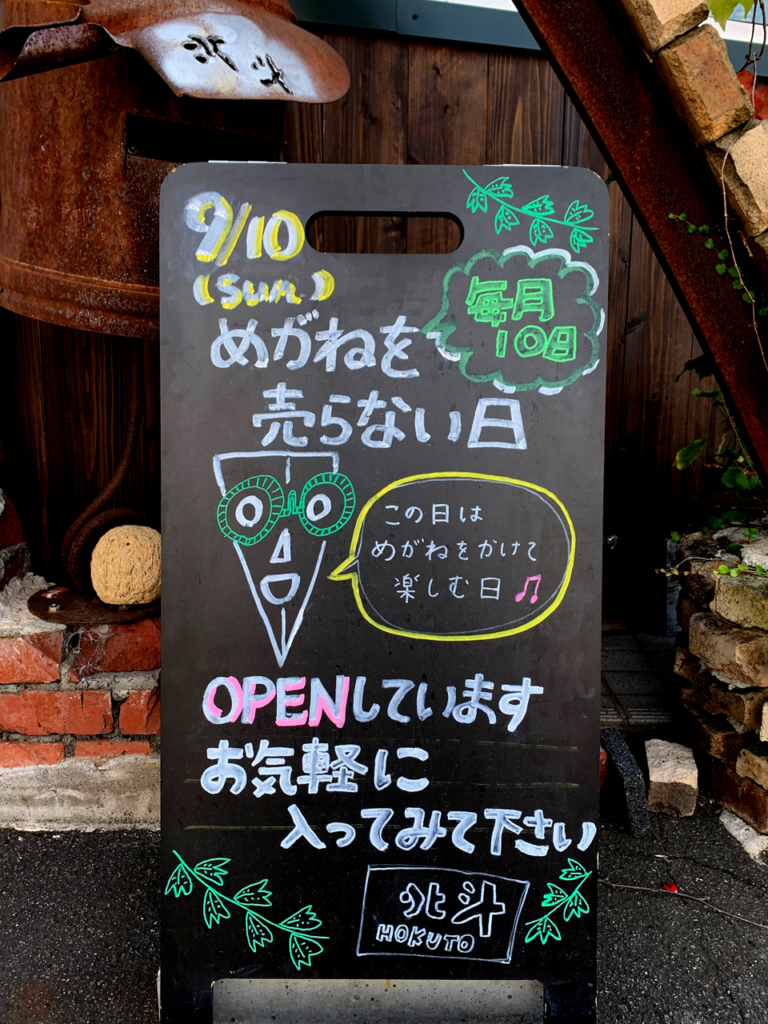 北斗
9/10
(Sun.)
毎月
10日
めがねを
売らない日
この日は
めがねをかけて
楽しむ日♫
OPENしています
お気軽に
入ってみて下さい
北斗
HOKUTO